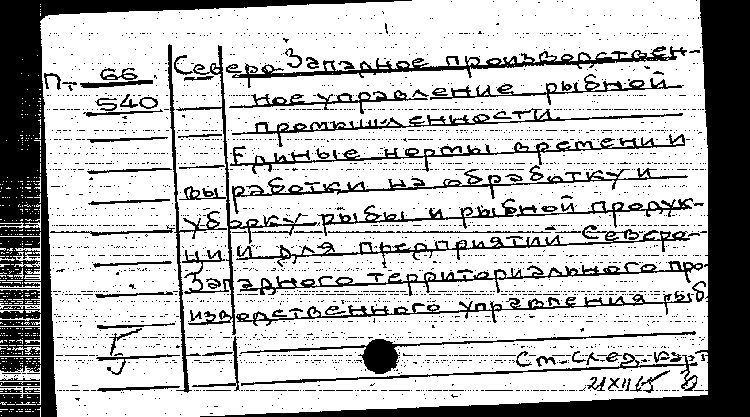 Пт 66
540
Северо-Западное производствен-
ное управление рыбной
промышленности.
Единые нормы времени и
выработки на обработку и
уборку рыбы и рыбной продук-
ции для предприятий Северо-
Западного территориального про-
изводственного управления рыб.
5
См. след. карт
21 XII 65